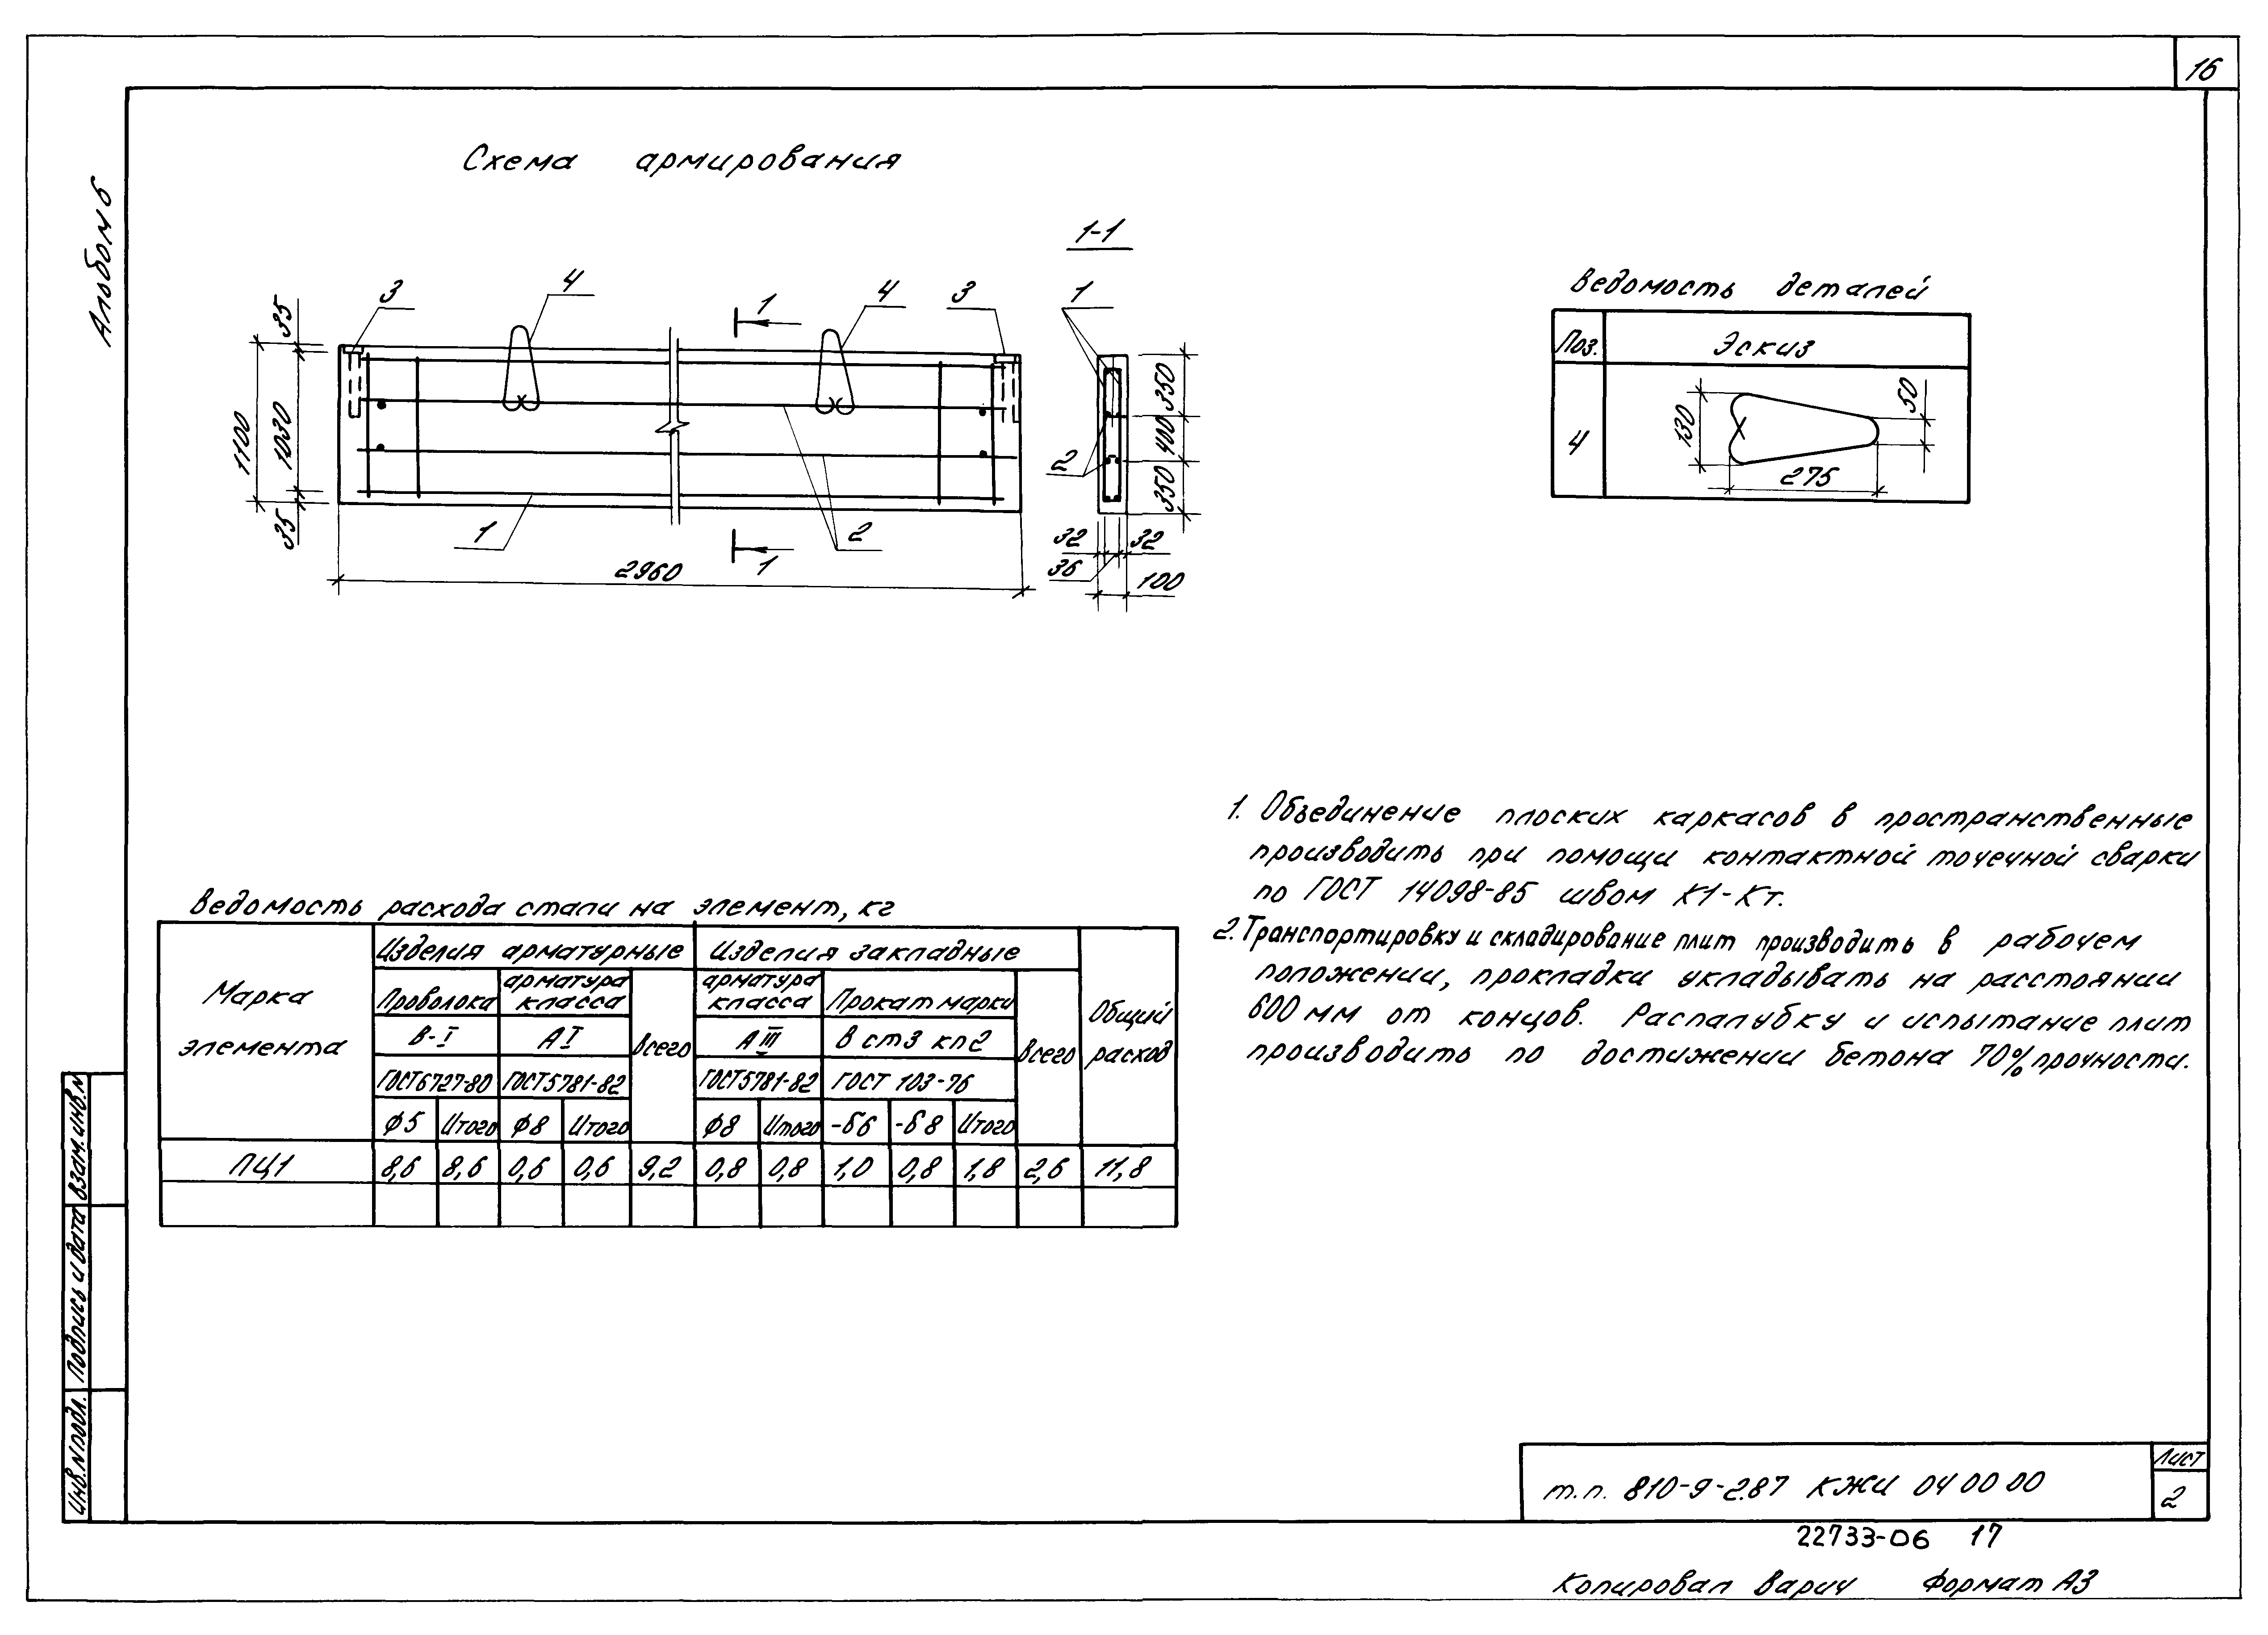 16
Альбом 6
Схема армирования
1-1
3
4
1
4
3
1
35
1100
1030
35
1
2
1
2960
2
350
400
350
32
32
36
100
Ведомость деталей
Поз.
Эскиз
4
130
50
275
1. Объединение плоских каркасов в пространственные
производить при помощи контактной точечной сварки
по ГОСТ 14098-85 швом К1-Кт.
2. Транспортировку и складирование плит производить в рабочем
положении, прокладки укладывать на расстоянии
600 мм от концов. Распалубку и испытание плит
производить по достижении бетона 70% прочности.
Ведомость расхода стали на элемент, кг
Марка элемента
Изделия арматурные
Изделия закладные
Общий расход
Проволока
арматура класса
Всего
арматура класса
Прокат марки
Всего
В-I
АI
АIII
В ст3 кп2
ГОСТ6727-80
ГОСТ5781-82
ГОСТ5781-82
ГОСТ 103-76
ф5
Итого
ф8
Итого
ф8
Итого
-б6
-б8
Итого
ПЦ1
8,6
8,6
0,6
0,6
9,2
0,8
0,8
1,0
0,8
1,8
2,6
11,8
Взам.инв.N
Подпись и дата
Инв.N подл.
т.п. 810-9-2.87 КЖИ 04 00 00
Лист
2
22733-06 17
Копировал Варич Формат А3